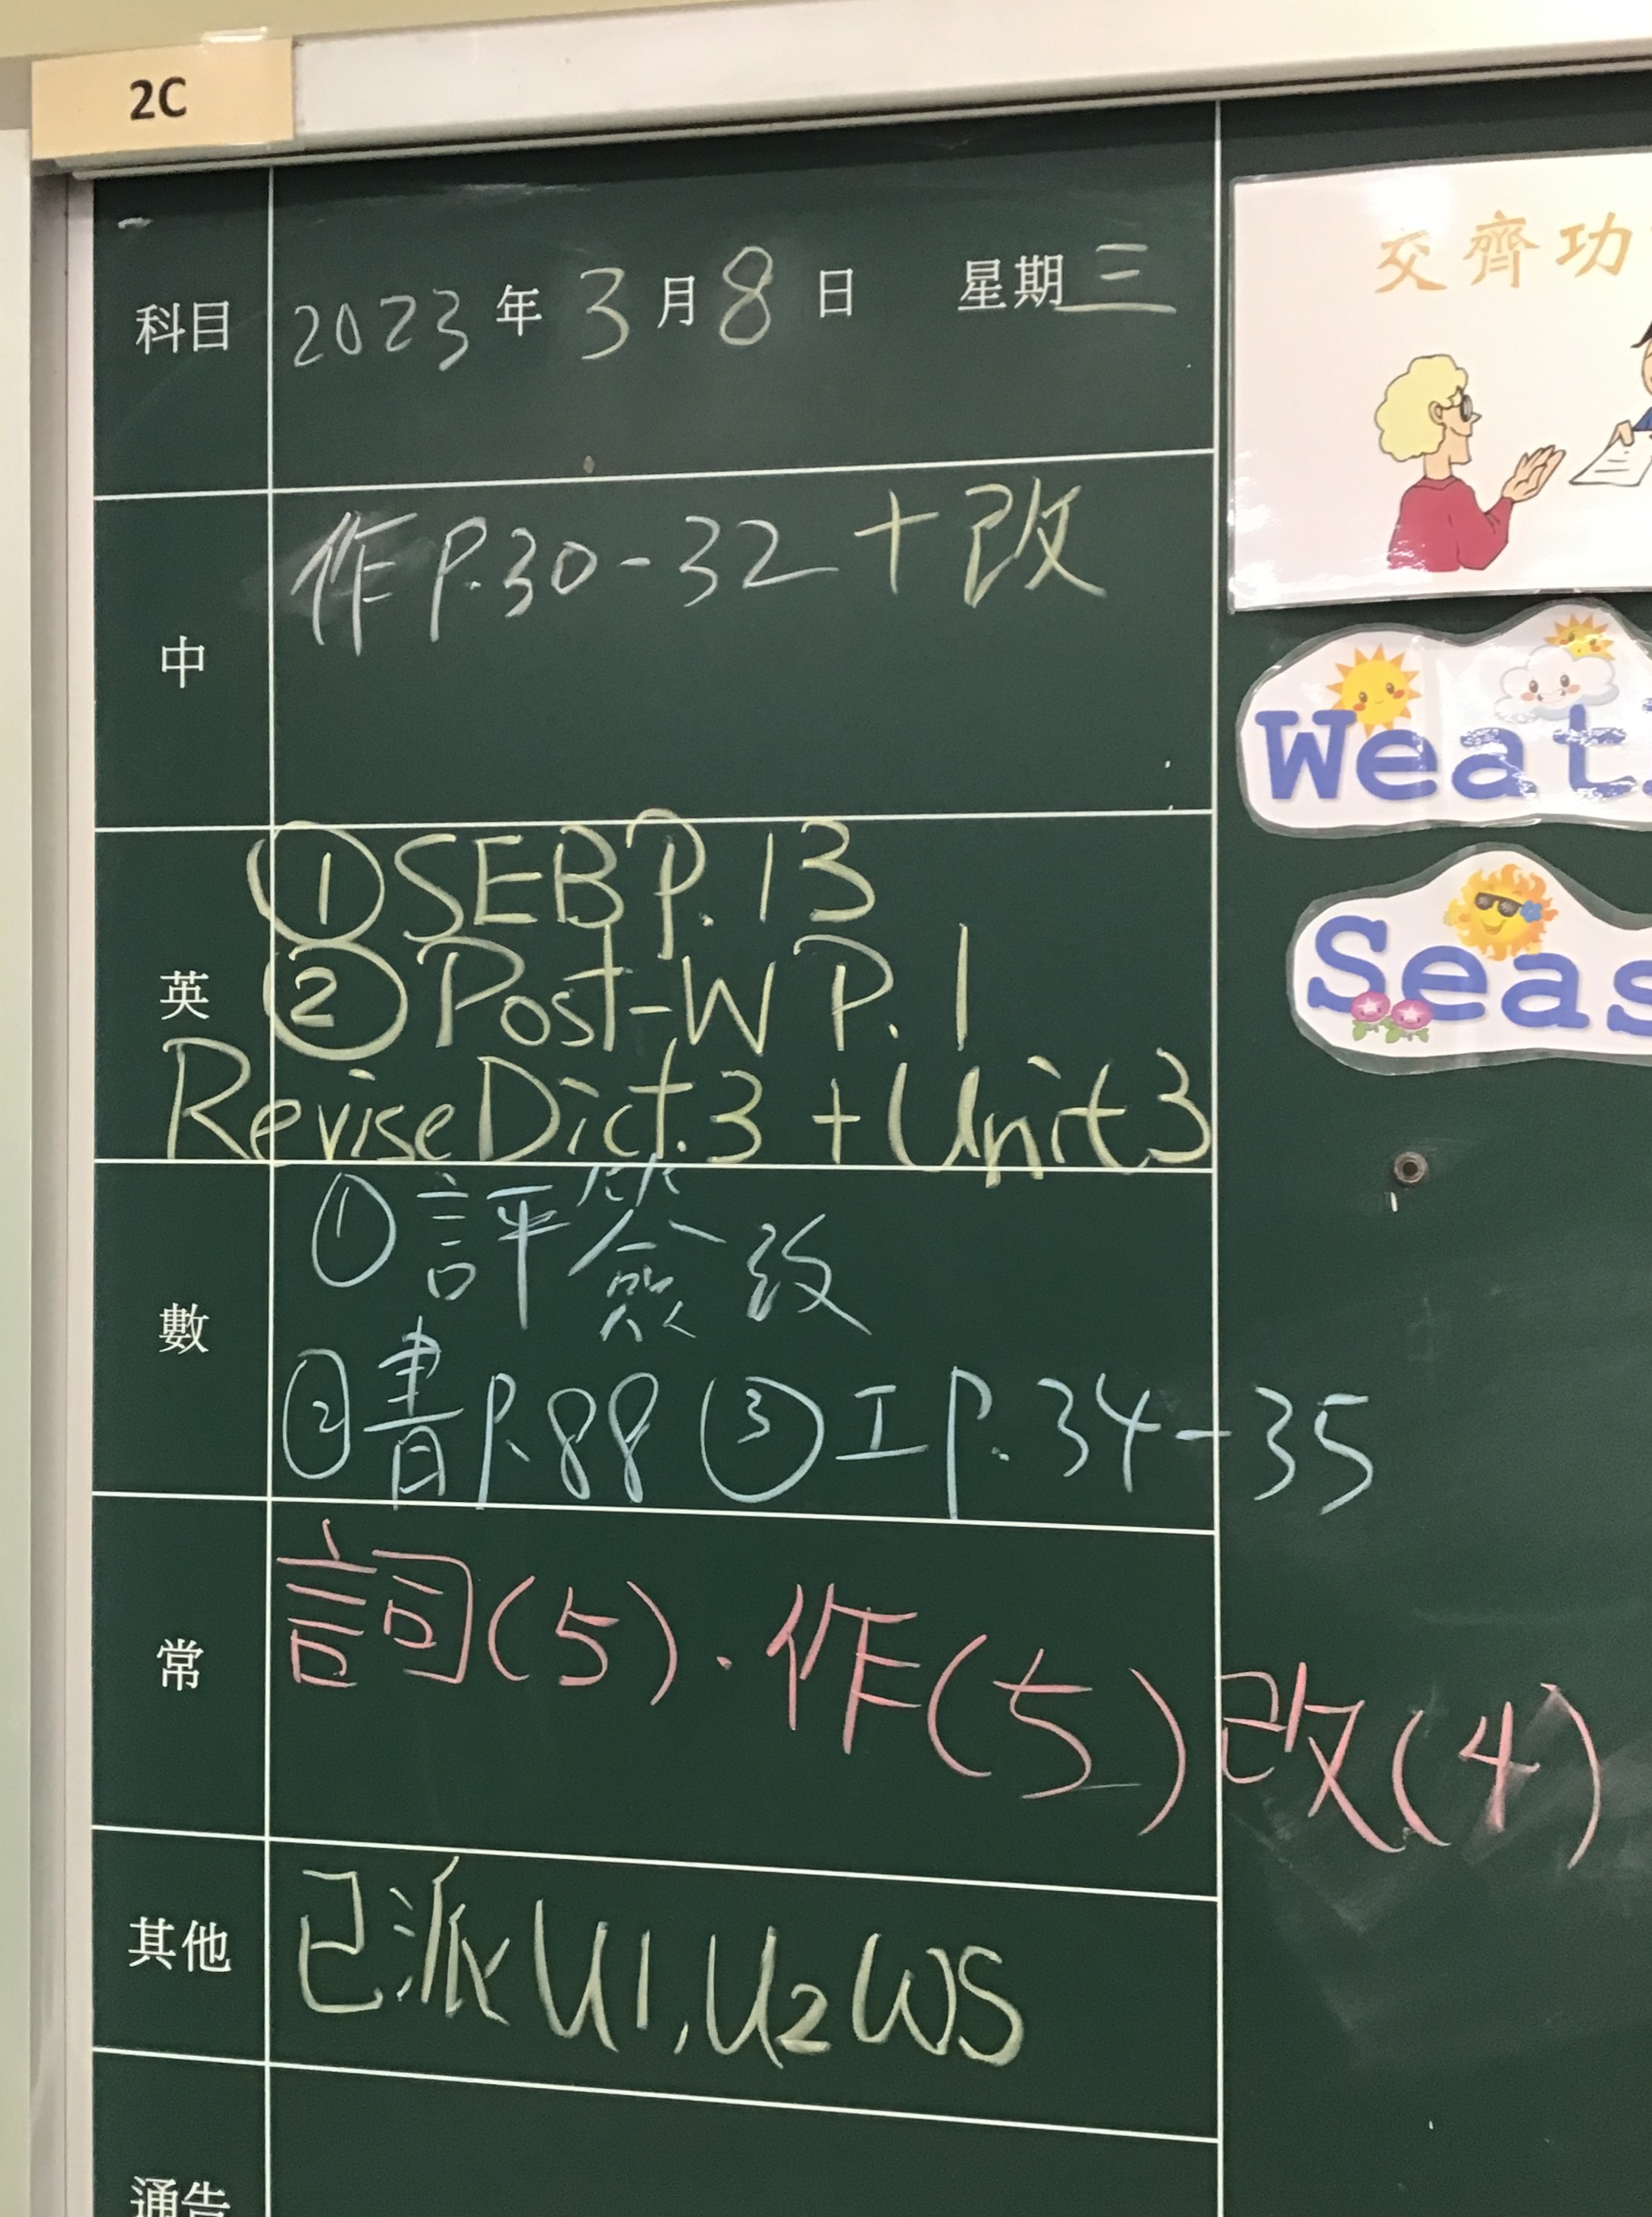 2C
科目 2023 年 3 月 8 日 星期三
中 作 P.30-32 + 改
英
① SEB P.13
② Post-W P.1
Revise Dict.3 + Unit 3
數
① 評簽改
② 書 P.88 ③ 工 P.34-35
常 詞(5).作(5)改(4)
其他 已派 U1, U2 WS
通告
交齊功
Weat
Seas